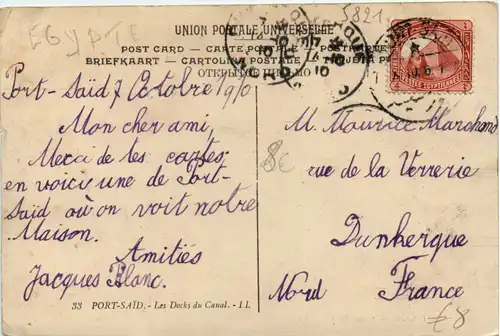 EGYPTE
5821
UNION POSTALE UNIVERSELLE
POST CARD — CARTE POSTALE — POSTKARTE
BRIEFKAART — CARTOLINA POSTALE — TARJETA
ОТКРЫТОЕ ПИСЬМО
POSTES EGYPTIENNES
Port-Saïd 7 Octobre 1910
Mon cher ami,
Merci de tes cartes
en voici une de Port-
Saïd où on voit notre
Maison.
Amitiés
Jacques Blanc.
8€
M. Maurice Marchand
rue de la Verrerie
Dunkerque
Nord France
33 PORT-SAÏD. - Les Docks du Canal. - LL
€8